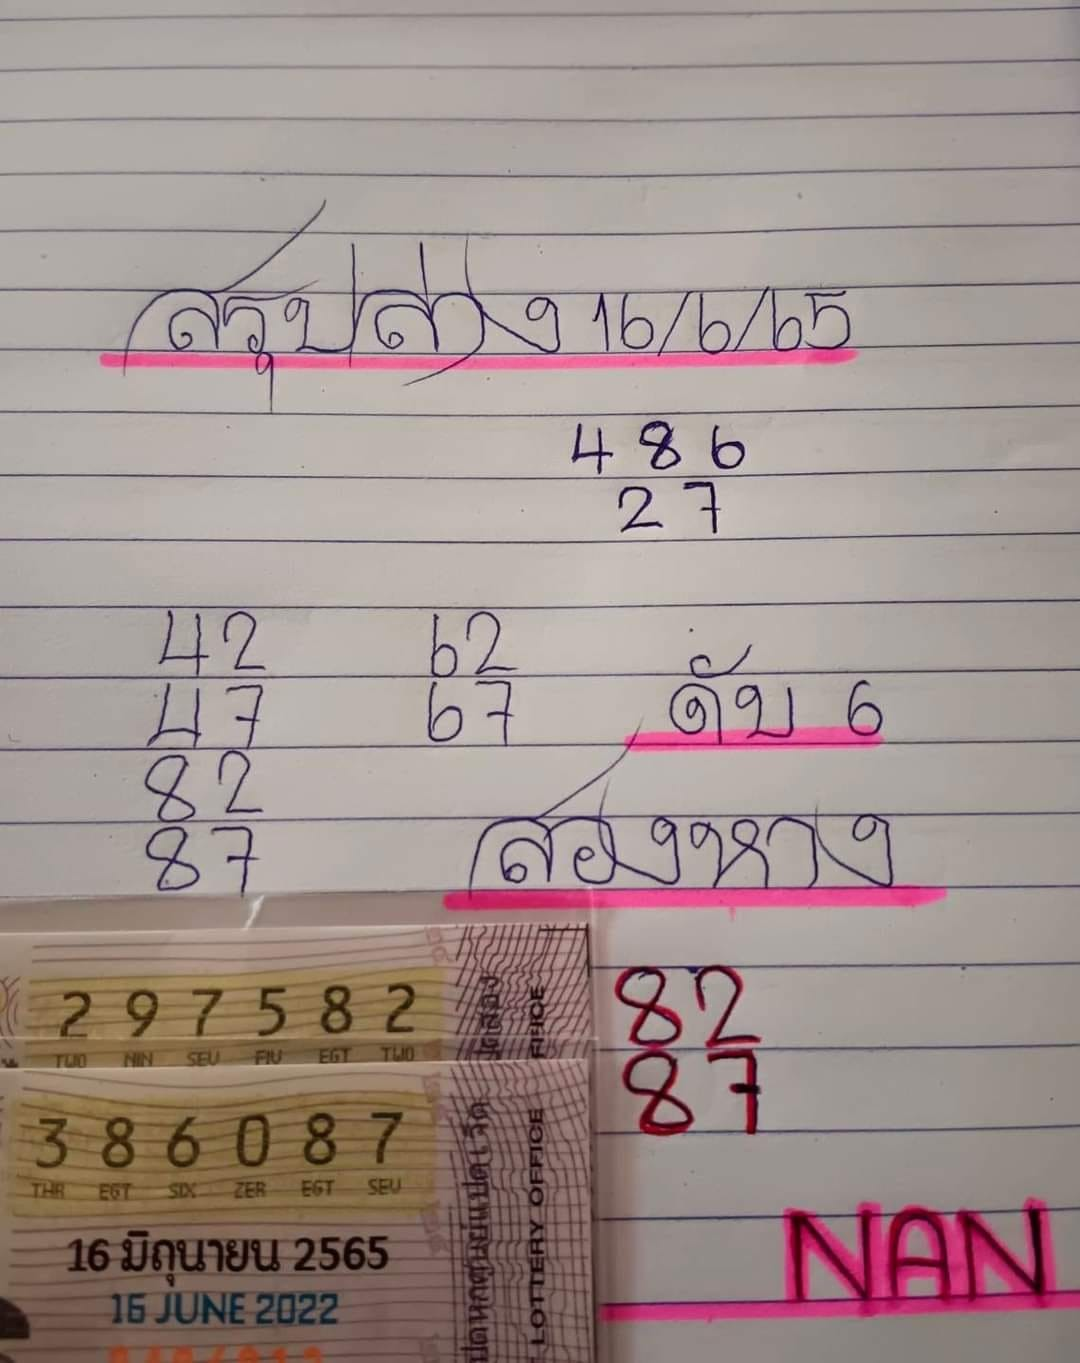 สรุปล่าง 16/6/65
4 8 6
2 7
42 62
47 67 ดับ 6
82
87 สองหาง
82
87
2 9 7 5 8 2
TWO NIN SEV FIV EGT TWO
3 8 6 0 8 7
THR EGT SIX ZER EGT SEV
16 มิถุนายน 2565
16 JUNE 2022
LOTTERY OFFICE
NAN